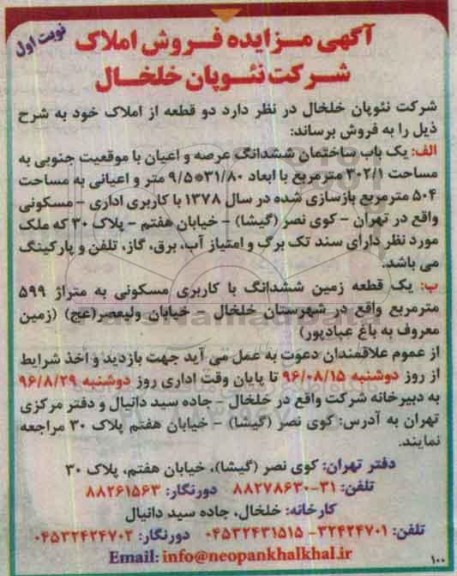 نوبت اول
آگهی مزایده فروش املاک
شرکت نئوپان خلخال
شرکت نئوپان خلخال در نظر دارد دو قطعه از املاک خود به شرح
ذیل را به فروش برساند:
الف: یک باب ساختمان ششدانگ عرصه و اعیان با موقعیت جنوبی به
مساحت ۳۰۲/۱ مترمربع با ابعاد ۳۱/۸۰*۹/۵ متر و اعیانی به مساحت
۵۰۴ مترمربع بازسازی شده در سال ۱۳۷۸ با کاربری اداری - مسکونی
واقع در تهران - کوی نصر (گیشا) - خیابان هفتم - پلاک ۳۰ که ملک
مورد نظر دارای سند تک برگ و امتیاز آب، برق، گاز، تلفن و پارکینگ
می باشد.
ب: یک قطعه زمین ششدانگ با کاربری مسکونی به متراژ ۵۹۹
مترمربع واقع در شهرستان خلخال - خیابان ولیعصر(عج) (زمین
معروف به باغ عبادپور)
از عموم علاقمندان دعوت به عمل می آید جهت بازدید و اخذ شرایط
از روز دوشنبه ۹۶/۰۸/۱۵ تا پایان وقت اداری روز دوشنبه ۹۶/۸/۲۹
به دبیرخانه شرکت واقع در خلخال - جاده سید دانیال و دفتر مرکزی
تهران به آدرس: کوی نصر (گیشا) - خیابان هفتم پلاک ۳۰ مراجعه
نمایند.
دفتر تهران: کوی نصر (گیشا)، خیابان هفتم، پلاک ۳۰
تلفن: ۳۱-۸۸۲۷۸۶۳۰ دورنگار: ۸۸۲۶۱۵۶۳
کارخانه: خلخال، جاده سید دانیال
تلفن: ۳۲۴۲۴۷۰۱-۰۴۵۳۲۴۳۱۵۱۵ دورنگار: ۰۴۵۳۲۴۲۴۷۰۲
Email: info@neopankhalkhal.ir
۱۰۰